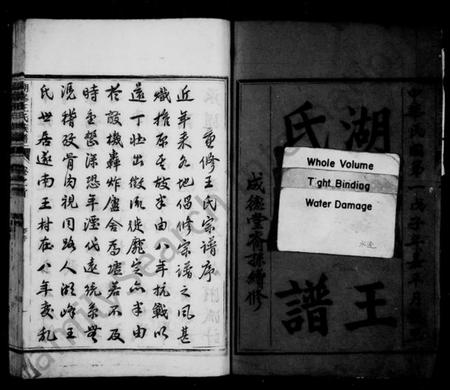 中華民國第一戊子年
湖王
氏譜
成德堂裔孫續修
Whole Volume
Tight Binding
Water Damage
重修王氏宗譜序
近年來各地倡修宗譜之風甚
熾推原其故半由八年抗戰以
還丁壯出徵流徙靡定亦半由
於敵機轟炸廬舍為墟若不及
時重鰲深恐年湮代遠統系無
稽致骨肉視同路人湖峰王
氏世居遂南王村在八年變亂